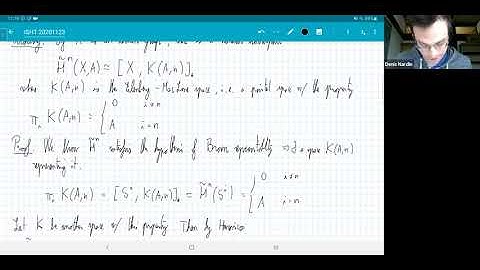 ISHT 20201123
Denis Nardin
H̃ⁿ(X,A) ≃ [X, K(A,n)]ₒ
where K(A,n) is the Eilenberg-MacLane space, i.e. a pointed space w/ the property
πᵢ K(A,n) = { 0 i≠n
A i=n
Proof. We know H̃ⁿ satisfies the hypothesis of Brown representability ⇒ ∃ a space K(A,n)
representing it.
πᵢ K(A,n) = [Sⁱ, K(A,n)]ₒ = H̃ⁿ(Sⁱ) = { 0 i≠n
A i=n
Let K be another space w/ this property. Then by Hurewicz